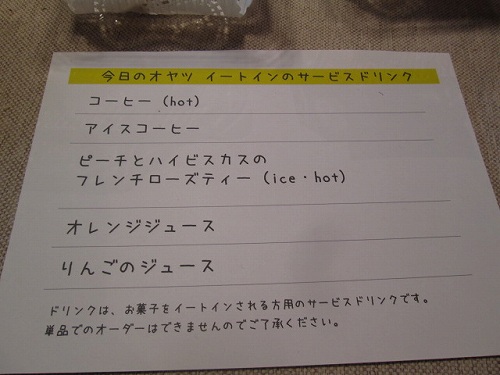 今日のオヤツ イートインのサービスドリンク
コーヒー (hot)
アイスコーヒー
ピーチとハイビスカスの
フレンチローズティー (ice・hot)
オレンジジュース
りんごのジュース
ドリンクは、お菓子をイートインされる方用のサービスドリンクです。
単品でのオーダーはできませんのでご了承ください。